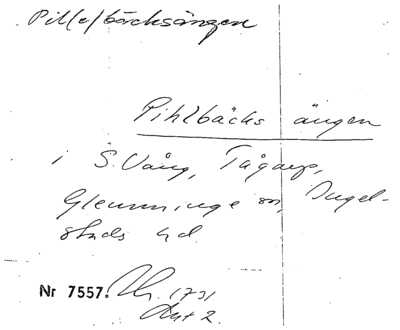 Pil(le)bäcksängen
Pihlbäcks ängen
i S. Vång, Tågarp,
Glemminge sn, Ingel-
stads hd.
Nr 7557. 1731
Akt 2.